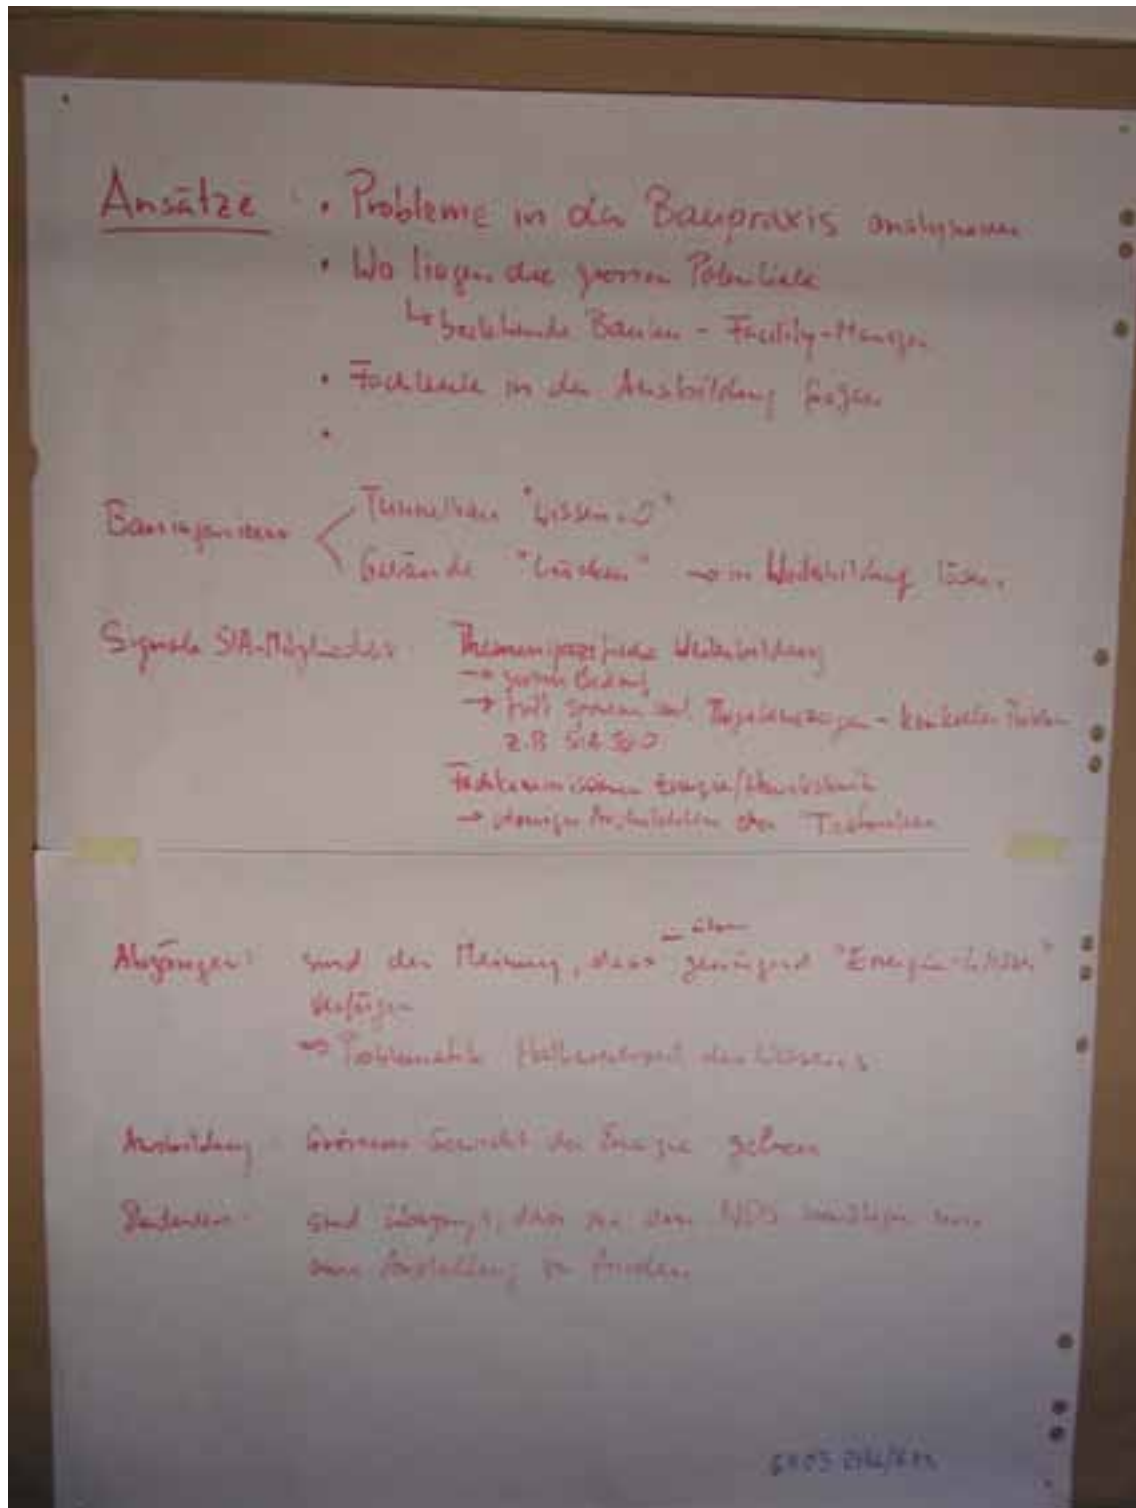 Ansätze : • Probleme in der Baupraxis analysieren
• Wo liegen die grossen Potentiale
↳ bestehende Bauten - Facility-Manager
• Fachleute in der Ausbildung fragen
•
Bauingenieure < Tunnelbau "Wissen = 0"
Gebäude "Lücken" → in Weiterbildung lösen.
Signale SIA-Mitglieder: Themenspezifische Weiterbildung
→ grosser Bedarf
→
z.B. SIA 380
Fachkommissionen Energie/Haustechnik
→ weniger Architekten eher Techniker
über
Abgänger: sind der Meinung, dass genügend "Energie-Wissen"
verfügen
⇒ Problematik Halbwertszeit des Wissens
Ausbildung: Grösseres Gewicht der Energie geben
Studenten: sind überzeugt, dass sie dem NDS
eine Anstellung zu finden.